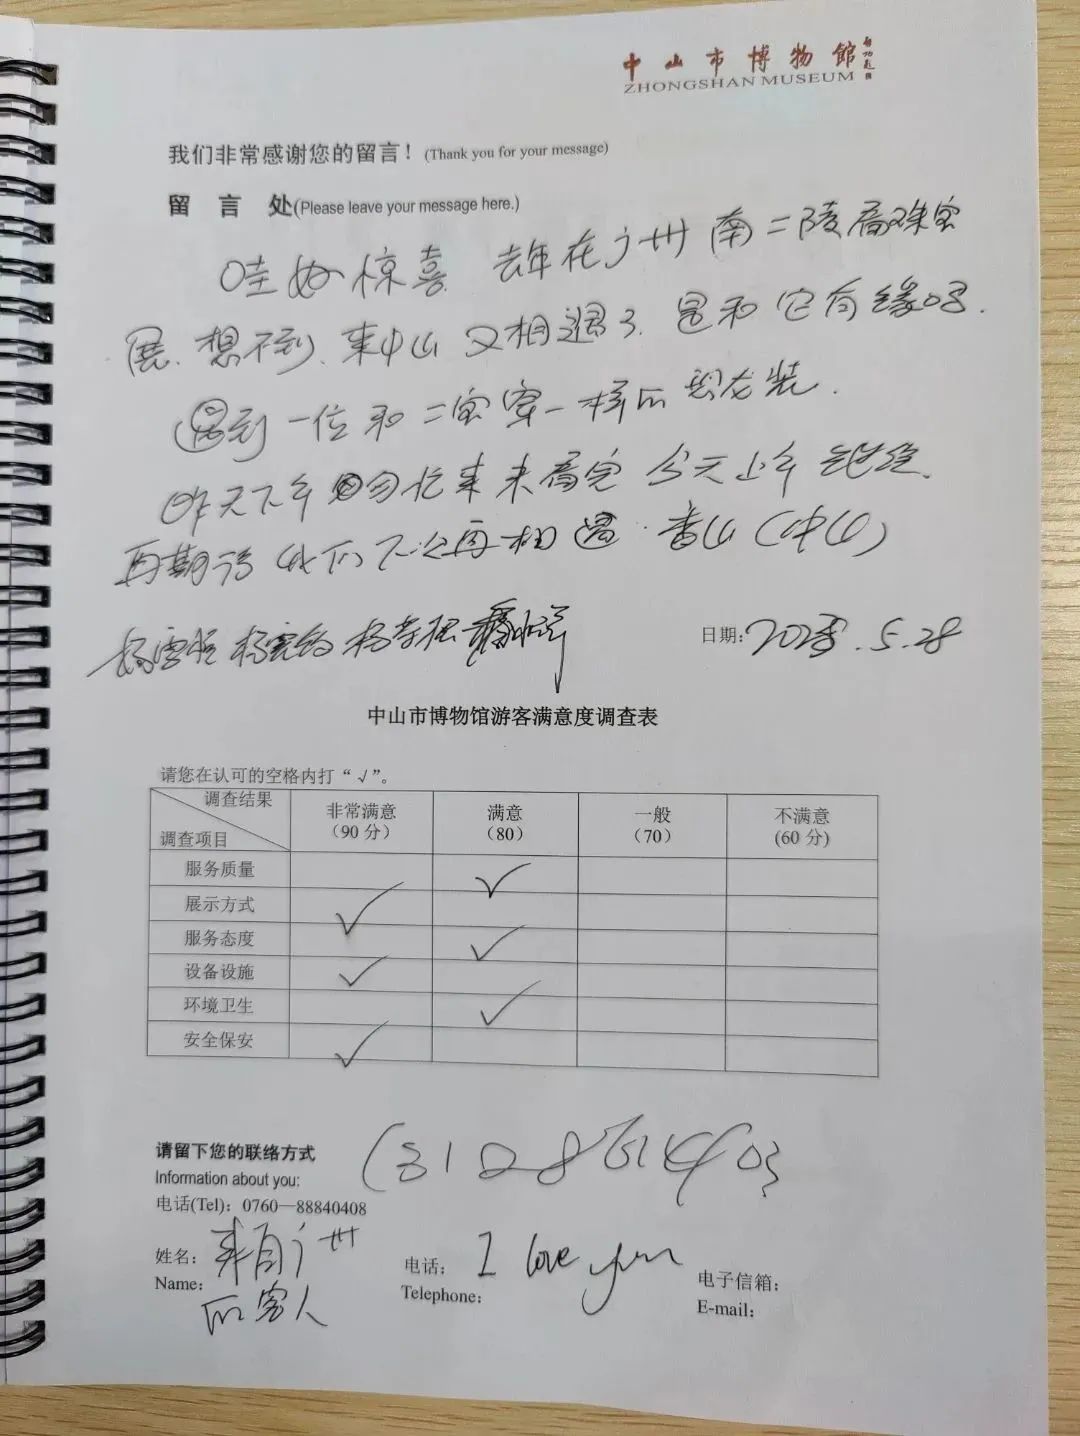 中山市博物館
ZHONGSHAN MUSEUM
我们非常感谢您的留言！(Thank you for your message)
留 言 处(Please leave your message here.)
哇好惊喜 去年在广州南二陵看珠宝
展.想不到.来中山又相遇了.是和它有缘吗.
遇到一位和二宝穿一样的恐龙装.
昨天下午匆忙来未看完 今天上午
再期待 我们下次再相遇.香山(中山)
日期: .5.28
中山市博物馆游客满意度调查表
请您在认可的空格内打“√”。
调查结果 非常满意 满意 一般 不满意
调查项目 (90 分) (80) (70) (60 分)
服务质量 ✓
展示方式 ✓
服务态度 ✓
设备设施 ✓
环境卫生 ✓
安全保安 ✓
请留下您的联络方式
Information about you:
电话(Tel)：0760—88840408
姓名: 来自广州 电话: I love you 电子信箱:
Name: 的客人 Telephone: E-mail: